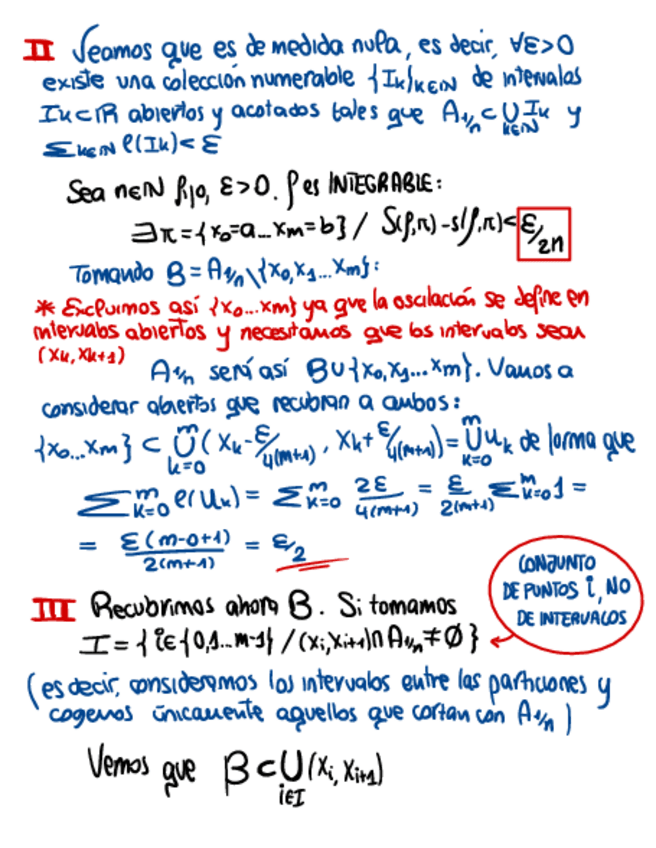 II Veamos que es de medida nula, es decir, ∀ε>0
existe una colección numerable {Iₖ}ₖ∈ℕ de intervalos
Iₖ⊂ℝ abiertos y acotados tales que A₁/ₙ ⊂ ⋃ₖ∈ℕ Iₖ y
Σₖ∈ℕ ℓ(Iₖ) < ε
Sea n∈ℕ fijo, ε>0. f es INTEGRABLE:
∃π={x₀=a...xₘ=b} / S(f,π)-s(f,π)<ε/2n
Tomando B = A₁/ₙ\{x₀,x₁...xₘ}:
* Excluimos así {x₀...xₘ} ya que la oscilación se define en
intervalos abiertos y necesitamos que los intervalos sean
(xₖ, xₖ₊₁)
A₁/ₙ será así B∪{x₀,x₁...xₘ}. Vamos a
considerar abiertos que recubran a ambos:
{x₀...xₘ} ⊂ ⋃ₖ₌₀ᵐ (xₖ-ε/4(m+1), xₖ+ε/4(m+1)) = ⋃ₖ₌₀ᵐ uₖ de forma que
Σₖ₌₀ᵐ ℓ(uₖ) = Σₖ₌₀ᵐ 2ε/4(m+1) = ε/2(m+1) Σₖ₌₀ᵐ 1 =
= ε(m-0+1)/2(m+1) = ε/2
III Recubrimos ahora B. Si tomamos
I = {i∈{0,1...m-1} / (xᵢ,xᵢ₊₁)∩A₁/ₙ ≠ ∅}
CONJUNTO
DE PUNTOS i, NO
DE INTERVALOS
(es decir, consideramos los intervalos entre las particiones y
cogemos únicamente aquellos que cortan con A₁/ₙ)
Vemos que B ⊂ ⋃ᵢ∈I (xᵢ, xᵢ₊₁)